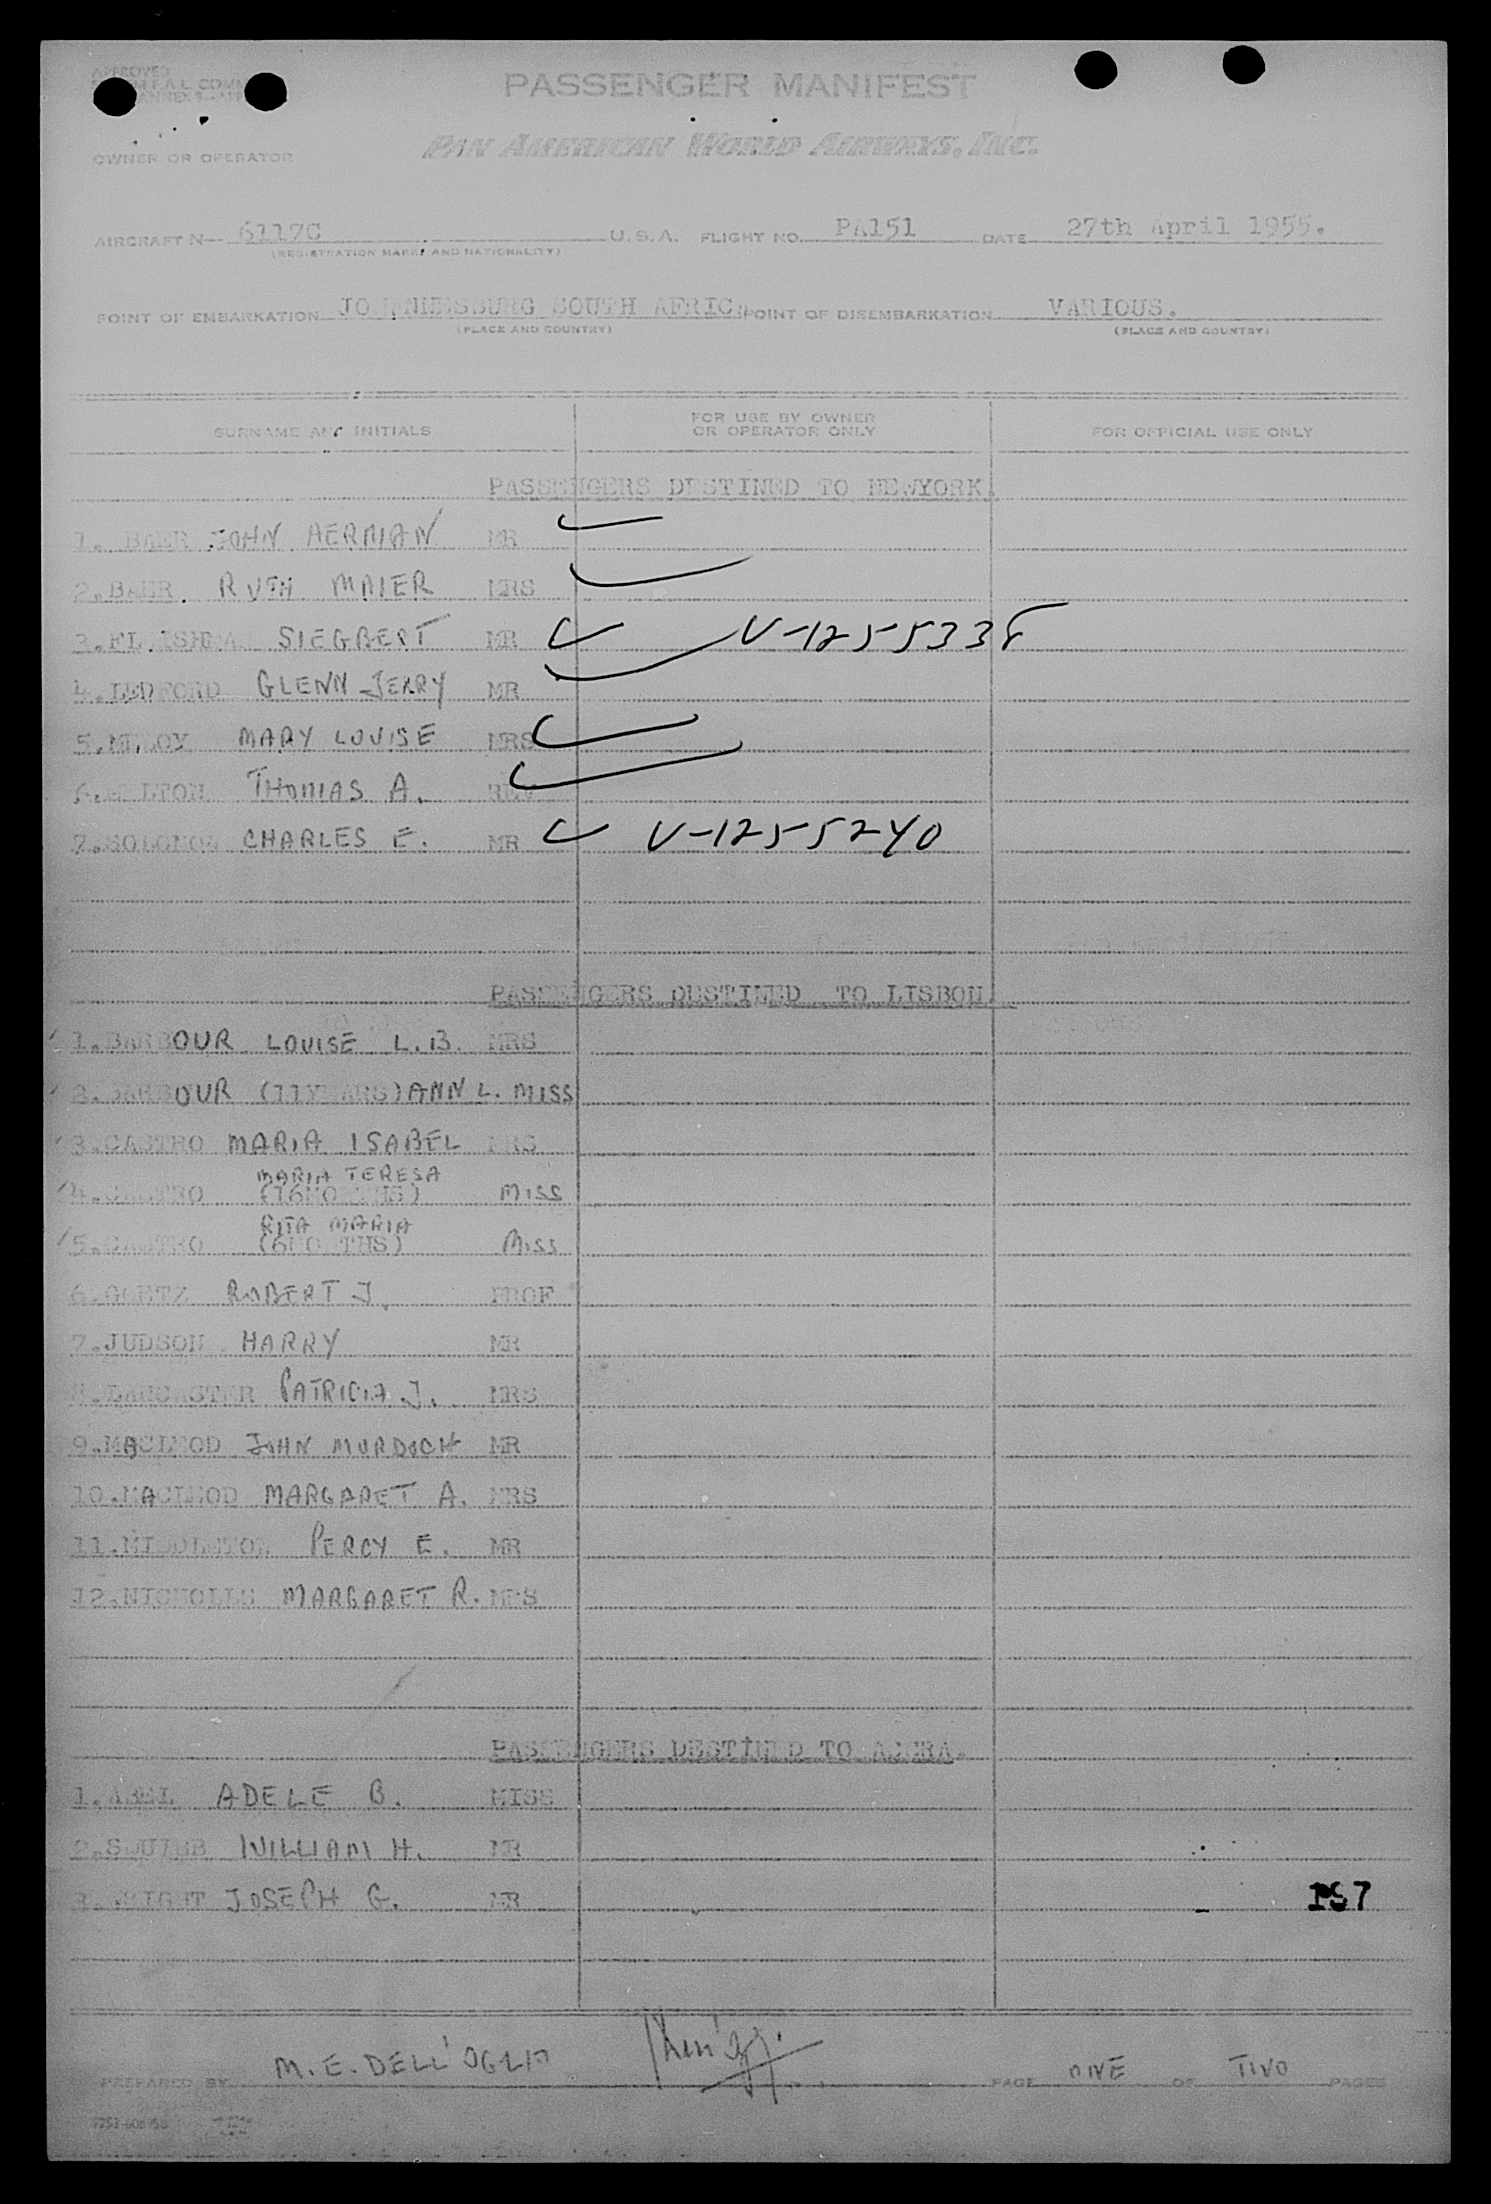 APPROVED
PASSENGER MANIFEST
OWNER OR OPERATOR PAN AMERICAN WORLD AIRWAYS, INC.
AIRCRAFT N— 6117C U.S.A. FLIGHT NO. PA151 DATE 27th April 1955.
(REGISTRATION MARKS AND NATIONALITY)
POINT OF EMBARKATION JOHANNESBURG SOUTH AFRICA POINT OF DISEMBARKATION VARIOUS.
(PLACE AND COUNTRY) (PLACE AND COUNTRY)
SURNAME AND INITIALS FOR USE BY OWNER OR OPERATOR ONLY FOR OFFICIAL USE ONLY
PASSENGERS DESTINED TO NEWYORK.
1. BAER JOHN HERMAN MR
2. BAER RUTH MAIER MRS
3. SIEGBERT MR V-1255338
4. LEDFORD GLENN JERRY MR
5. MARY LOUISE MRS
6. THOMAS A. REV
7. SOLOMON CHARLES E. MR V-1255240
PASSENGERS DESTINED TO LISBON.
1. BARBOUR LOUISE L.B. MRS
2. BARBOUR (11YEARS) ANN L. MISS
3. CASTRO MARIA ISABEL MRS
MARIA TERESA
4. CASTRO (16MONTHS) MISS
RITA MARIA
5. CASTRO (6MONTHS) MISS
6. GOETZ ROBERT J. PROF
7. JUDSON HARRY MR
8. LANCASTER PATRICIA J. MRS
9. MACLEOD JOHN MURDOCH MR
10. MACLEOD MARGARET A. MRS
11. MIDDLETON PERCY E. MR
12. NICHOLLS MARGARET R. MRS
PASSENGERS DESTINED TO ACCRA.
1. ABEL ADELE B. MISS
2. SQUIBB WILLIAM H. MR
3. WRIGHT JOSEPH G. MR
157
PREPARED BY M. E. DELL'OGLIO PAGE ONE OF TWO PAGES